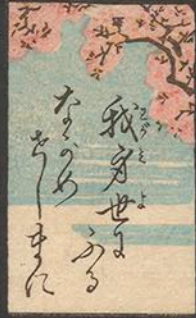 我身世にふる
ながめ
せしまに